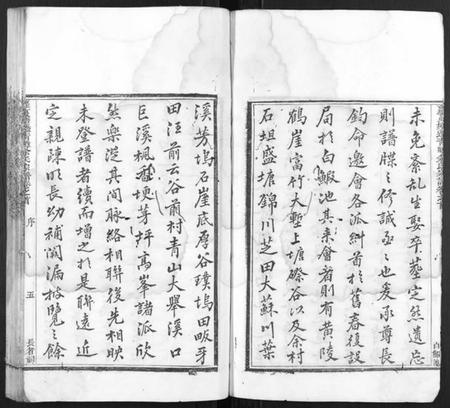 未免紊乱生娶卒葬定然遺忘
則譜牒之修誠亟亟也爰承尊長
鈞命邀會各派糾首於舊春復設
局於白鰕池其来會者則有黄陵
鶴崖富竹大塹上塘磜谷以及余村
石坦盛塘錦川芝田大蘇川葉
溪芳塢石崖底厚谷璞塢田畈牙
田汪前云谷前村青山大舉溪口
巨溪楓香埂芽坪高峯諸派欣
然樂從其間脉絡相聯後先相映
未登譜者續而增之於是聯遠近
定親疎明長幼補闕漏披覽之餘
序
五